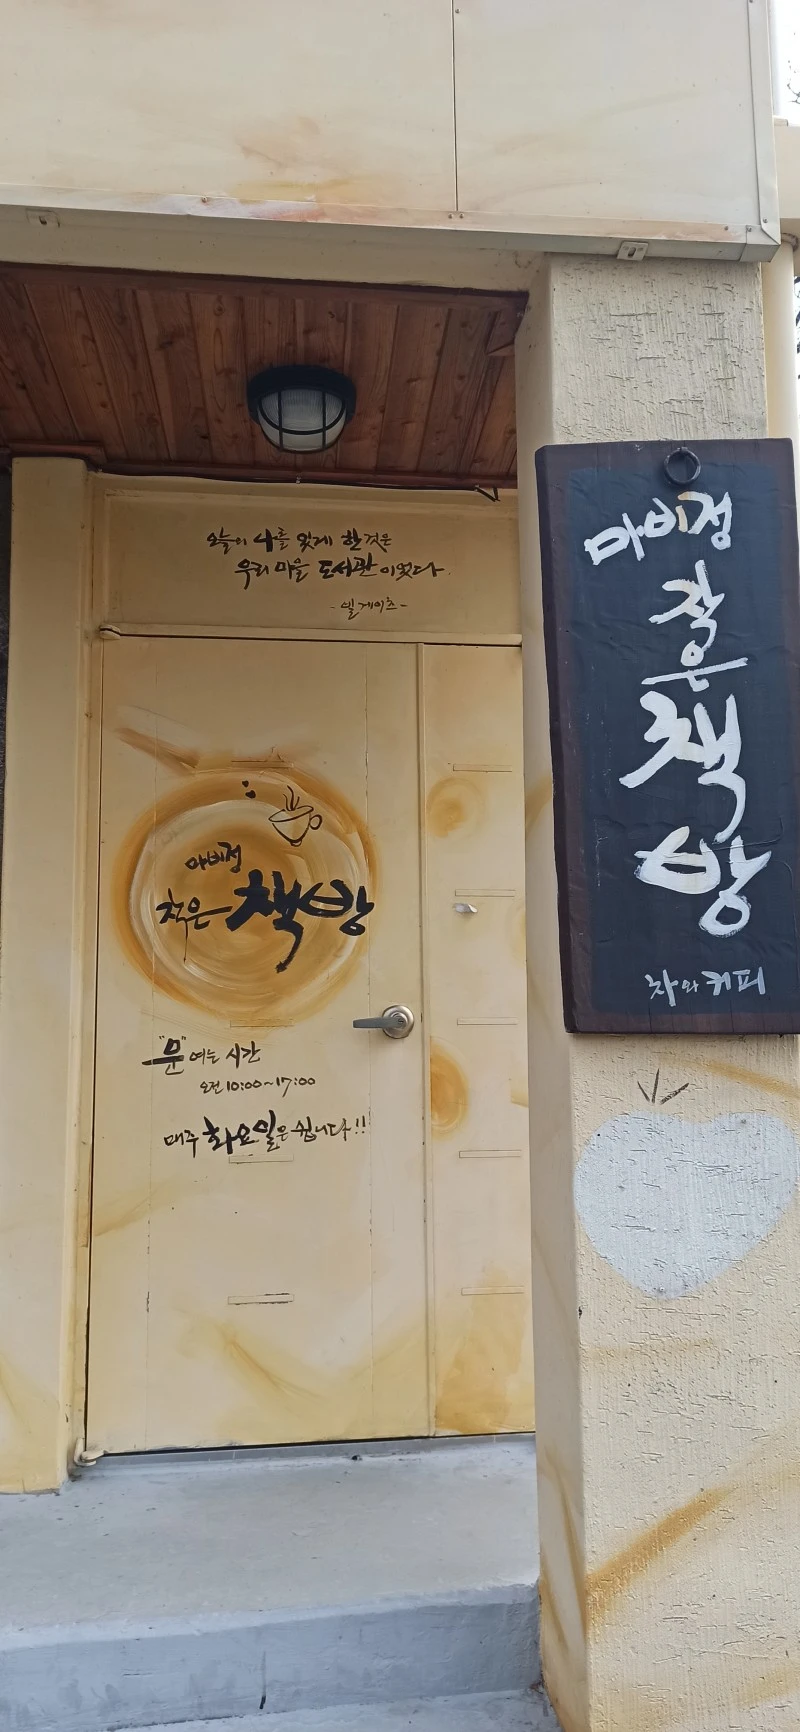 오늘의 나를 있게 한 것은
우리 마을 도서관이었다.
-빌게이츠-
마비정
작은 책방
"문" 여는 시간
오전 10:00~17:00
매주 화요일은 쉽니다!!
마비정
작은
책
방
차와 커피